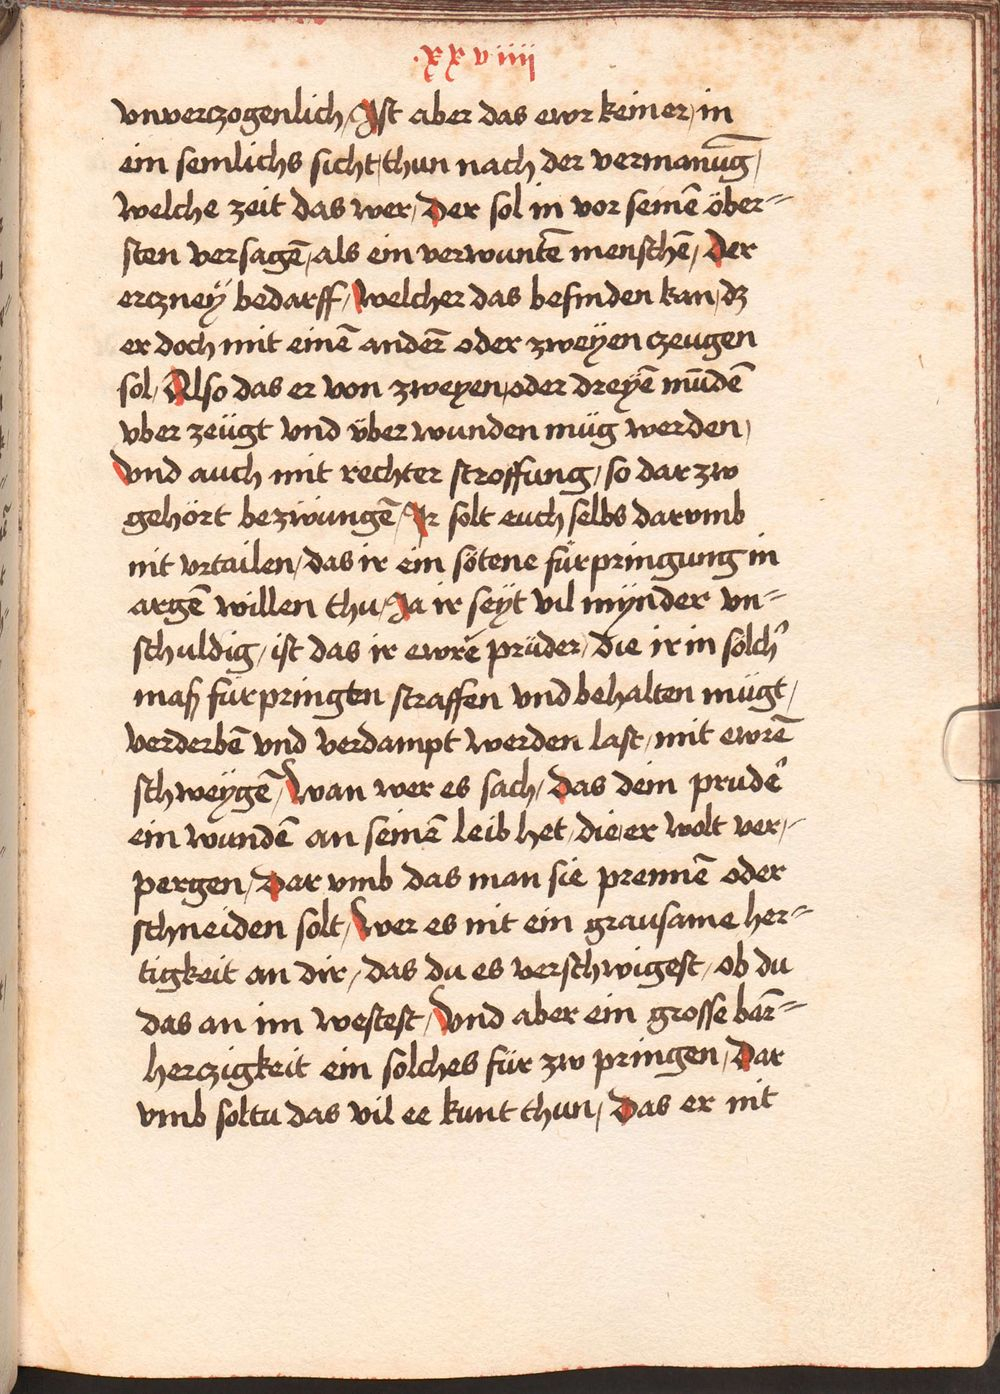 .xxviiii
vnverczogenlich / Ist aber das ewr keiner / in
ein semlichs sicht / thun nach der vermanūg /
welche zeit das wer / Der sol in vor seinē öber=
sten versagē / als ein verwuntē menschē / Der
erczneÿ bedarff / Welcher das befinden kan / dz
er doch mit einē anderē oder zweÿen czeugen
sol / Also das er von zweyen / oder dreÿē mūdē
vber zeügt vnd über wunden müg werden /
Vnd auch mit rechter stroffung / so dar zw
gehört bezwüngē / Ir solt euch selbs darvmb
nit vrtailen / das ir ein sötene fürpringung in
argē willen thu / Ja ir seÿt vil mÿnder vn=
schuldig / ist das ir ewrē prüder / die ir in solch᷑
maß fürpringten straffen vnd behalten mügt /
verderbē vnd verdampt werden last / mit ewrē
schweÿgē / Wan wer es sach / Das dein prude᷑
ein wundē an seinē leib het / die er wolt ver=
pergen / Dar vmb das man sie prennē oder
schneiden solt / Wer es nit ein grausame her=
tigkeit an dir / das du es verschwigest / ob du
das an im westest / Vnd aber ein grosse barm̄=
herczigkeit ein solches für zw pringen / Dar
vmb soltu das vil ee kunt thun / Das er nit